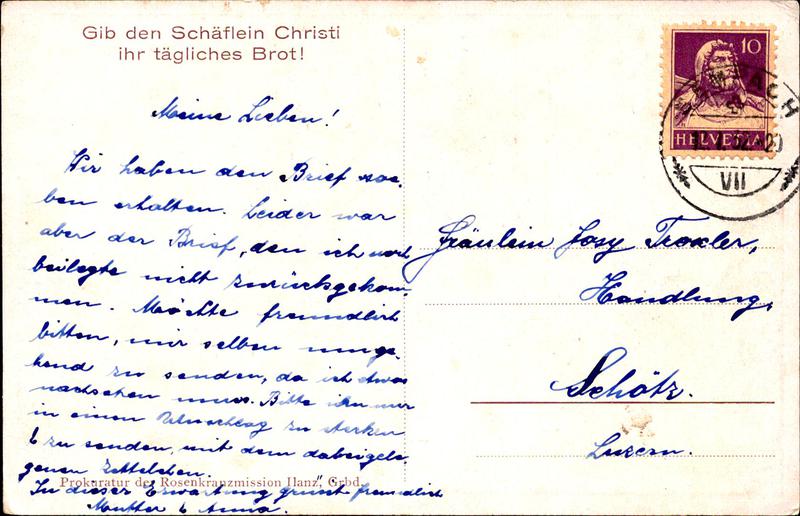 Gib den Schäflein Christi
ihr tägliches Brot!
Meine Lieben!
Wir haben den Brief soe-
ben erhalten. Leider war
aber der Brief, den ich noch
beilegte nicht zurückgekom-
men. Möchte freundlich
bitten, mir selben umge-
hend zu senden, da ich etwas
nachsehen muss. Bitte ihn nur
in einen Umschlag zu stecken
& zu senden, mit dem dabeigele-
genen Zettelchen.
Prokuratur der Rosenkranzmission Ilanz, Grbd.
In dieser Erwartung grüsst freundlich
Mutter & Anna.
10
HELVETIA
VII
Fräulein Josy Troxler,
Handlung,
Schötz.
Luzern.